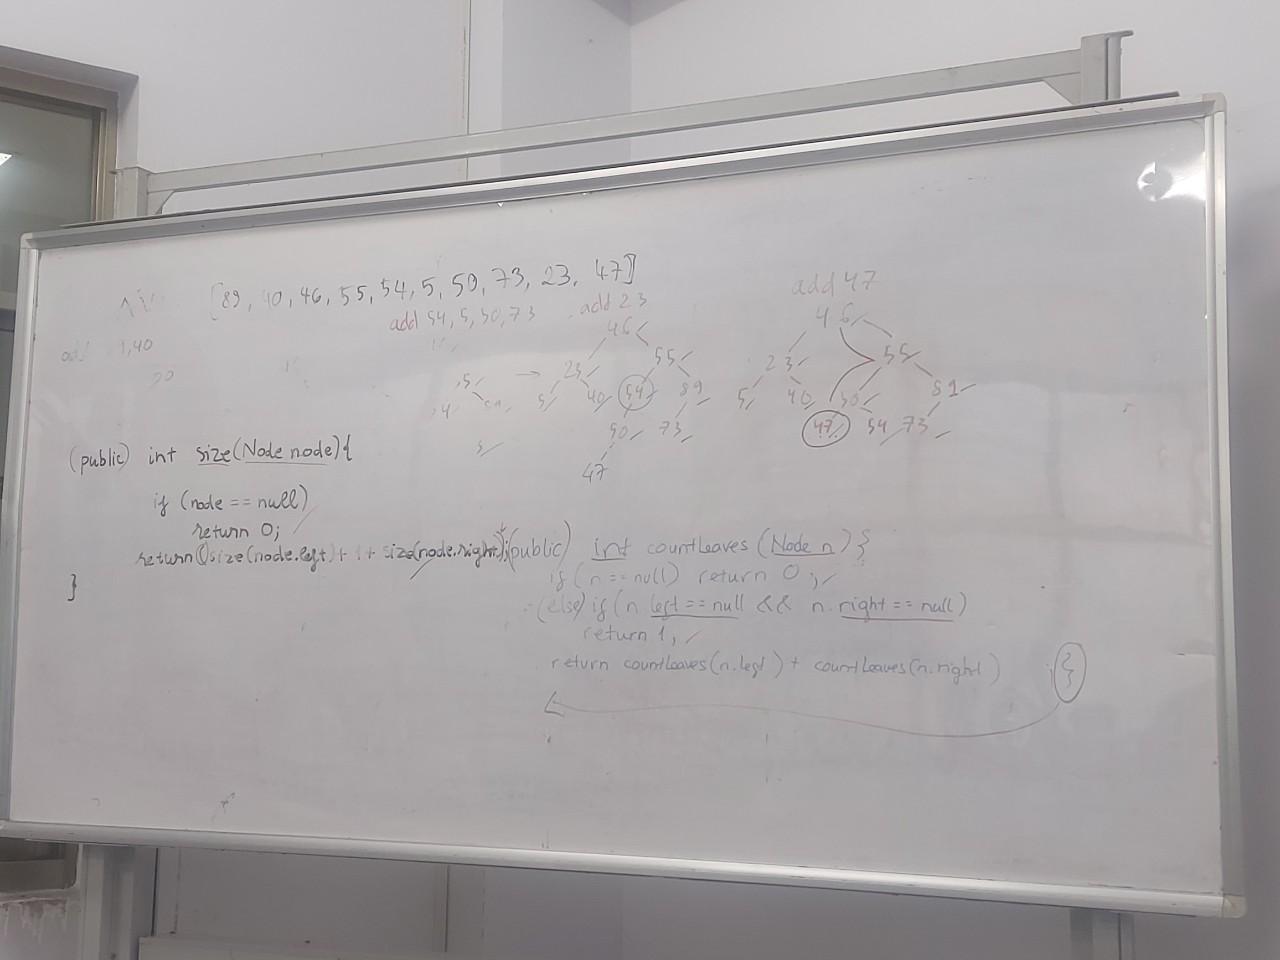 [89, 40, 46, 55, 54, 5, 50, 73, 23, 47]
add 54, 5, 50, 73
add 23
46
23 55
5 40 54 89
50 73
47
add 47
46
23 55
5 40 50 89
47 54 73
(public) int size(Node node){
if (node == null)
return 0;
return (size(node.left) + 1 + size(node.right));
}
(public) int countLeaves (Node n) {
if (n == null) return 0;
(else) if (n.left == null && n.right == null)
return 1;
return countLeaves(n.left) + countLeaves(n.right) ;
}